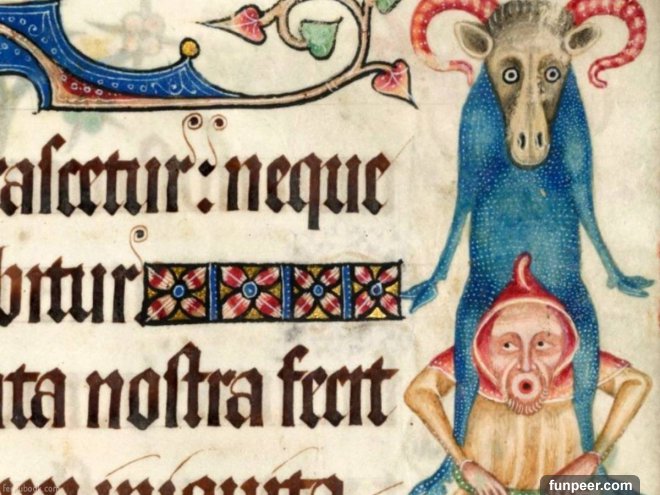 raſcetur: neque
bitur
ta noſtra fecit
iniquita
funpeer.com